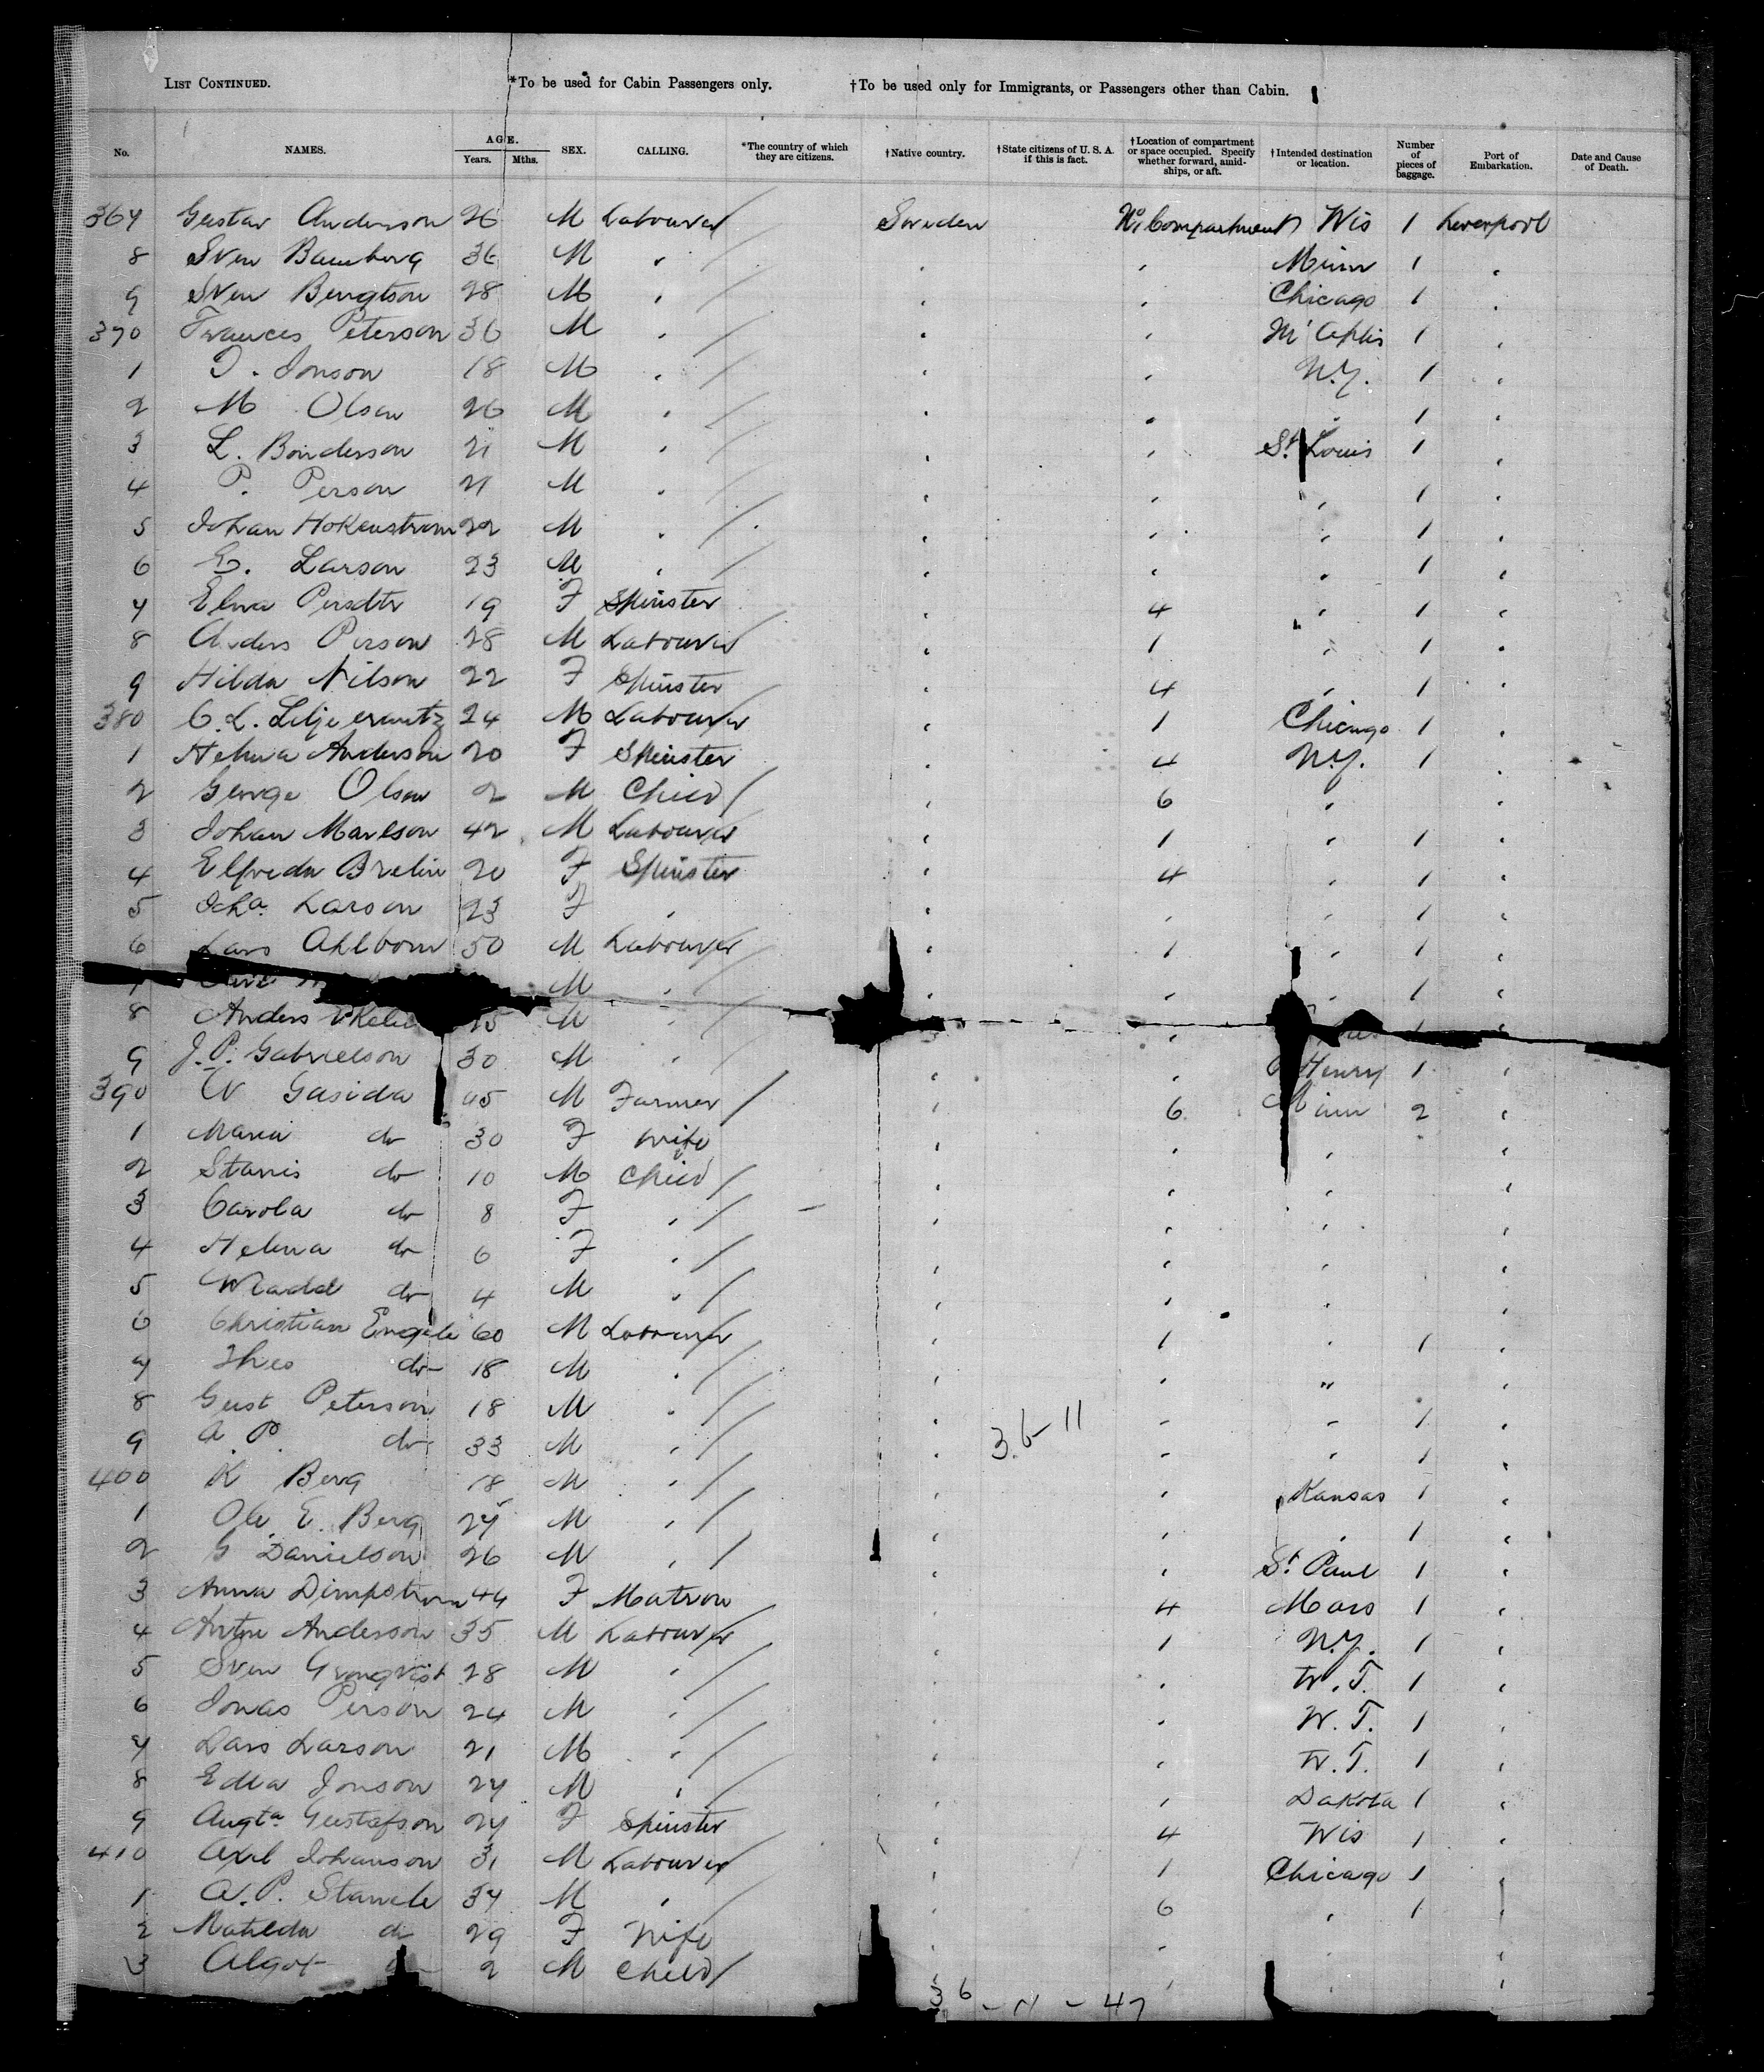 LIST CONTINUED. *To be used for Cabin Passengers only. †To be used only for Immigrants, or Passengers other than Cabin.
No. NAMES. AGE. Years. Mths. SEX. CALLING. *The country of which they are citizens. †Native country. †State citizens of U. S. A. if this is fact. †Location of compartment or space occupied. Specify whether forward, amidships, or aft. †Intended destination or location. Number of pieces of baggage. Port of Embarkation. Date and Cause of Death.
367 Gustav Anderson 26 M Labourer Sweden No 1 Compartment Wis 1 Liverpool
8 Sven Bamberg 36 M " " " Minn 1 "
9 Sven Bengtson 28 M " " " Chicago 1 "
370 Frances Peterson 36 M " " " 1 "
1 J. Jonson 18 M " " " N.Y. 1 "
2 M Olson 26 M " " " " 1 "
3 L. Bonderson 21 M " " " St Louis 1 "
4 P. Person 21 M " " " " 1 "
5 Johan Hokenstrom 22 M " " " " 1 "
6 E. Larson 23 M " " " " 1 "
7 Elna Persdtr 19 F Spinster " 4 " 1 "
8 Anders Person 28 M Labourer " 1 " 1 "
9 Hilda Nilson 22 F Spinster " 4 " 1 "
380 C. L. Liljecrantz 24 M Labourer " 1 Chicago 1 "
1 Helma Anderson 20 F Spinster " 4 N.Y. 1 "
2 George Olson 2 M Child " 6 " "
3 Johan Marlson 42 M Labourer " 1 " 1 "
4 Elfreda Brelin 20 F Spinster " 4 " 1 "
5 Joha Larson 23 F " " " " 1 "
6 Lars Ahlbom 50 M Labourer " 1 " 1 "
7 M " " " " 1 "
8 Anders M " " " 1 "
9 J. P. Gabrielson 30 M " " " Henry 1 "
390 W Gasida 45 M Farmer " 6 Minn 2 "
1 Maria do 30 F Wife " " " "
2 Stanis do 10 M Child " " " "
3 Carola do 8 F " " " " "
4 Helena do 6 F " " " " "
5 Wladd do 4 M " " " " "
6 Christian Engele 60 M Labourer " 1 " 1 "
7 Theo do 18 M " " " " "
8 Gust Peterson 18 M " " " " 1 "
9 A. P. do 33 M " " 3.6-11 " " 1 "
400 K Berg 18 M " " " Kansas 1 "
1 Ole E. Berg 27 M " " " " 1 "
2 G Danielson 26 M " " " St Paul 1 "
3 Anna Dimpstrom 44 F Matron " 4 Mars 1 "
4 Anton Anderson 35 M Labourer " 1 N.Y. 1 "
5 Sven Gronqvist 28 M " " " W. T. 1 "
6 Jonas Person 24 M " " " W. T. 1 "
7 Lars Larson 21 M " " " W. T. 1 "
8 Edla Jonson 27 M " " " Dakota 1 "
9 Augta Gustafson 27 F Spinster " 4 Wis 1 "
410 Axel Johanson 31 M Labourer " 1 Chicago 1 "
1 A. P. Stamele 37 M " " 6 " 1 "
2 Matilda do 29 F Wife " " " "
3 Algot 2 M Child " " "
36 - 11 - 47